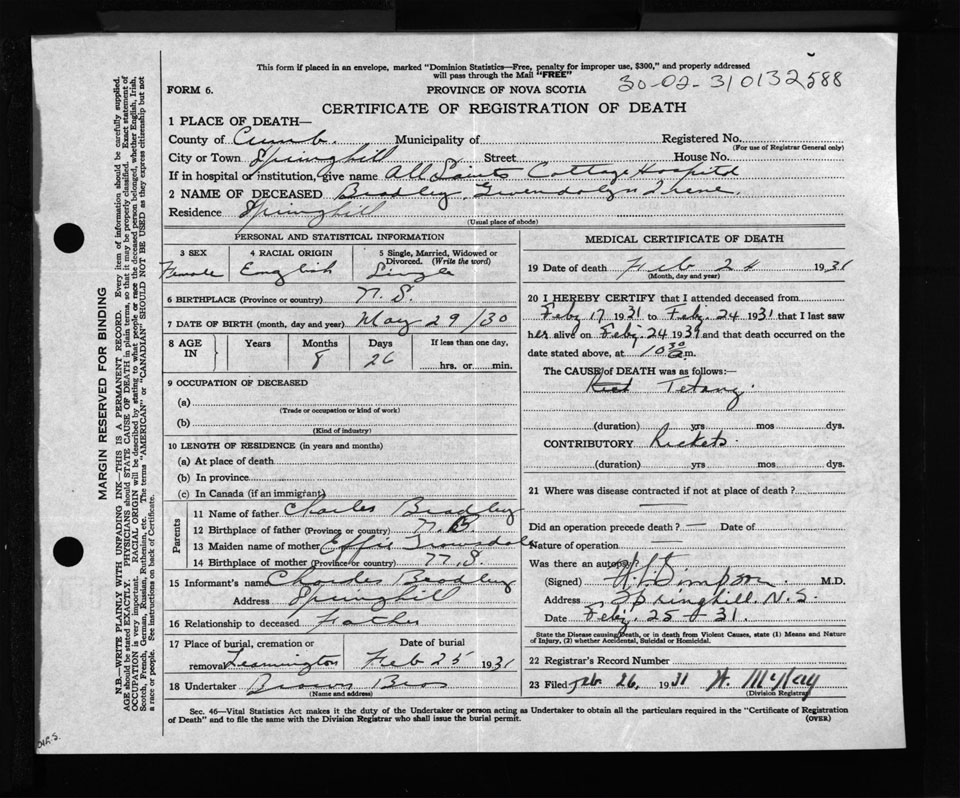 This form if placed in an envelope, marked "Dominion Statistics—Free, penalty for improper use, $300," and properly addressed
will pass through the Mail "FREE"
30-02-310132588
FORM 6.
PROVINCE OF NOVA SCOTIA
CERTIFICATE OF REGISTRATION OF DEATH
1 PLACE OF DEATH—
County of Cumb. Municipality of Registered No.
(For use of Registrar General only)
City or Town Springhill Street House No.
If in hospital or institution, give name All Saints Cottage Hospital
2 NAME OF DECEASED Bradley, Gwendolyn Irene.
Residence Springhill
(Usual place of abode)
PERSONAL AND STATISTICAL INFORMATION
3 SEX Female
4 RACIAL ORIGIN English
5 Single, Married, Widowed or Divorced. (Write the word) Single
6 BIRTHPLACE (Province or country) N. S.
7 DATE OF BIRTH (month, day and year) May 29/30
8 AGE IN Years Months 8 Days 26 If less than one day, hrs. or min.
9 OCCUPATION OF DECEASED
(a)
(Trade or occupation or kind of work)
(b)
(Kind of industry)
10 LENGTH OF RESIDENCE (in years and months)
(a) At place of death
(b) In province
(c) In Canada (if an immigrant)
Parents
11 Name of father Charles Bradley
12 Birthplace of father (Province or country) N. B.
13 Maiden name of mother Effie
14 Birthplace of mother (Province or country) N. S.
15 Informant's name Charles Bradley
Address Springhill
16 Relationship to deceased Father
17 Place of burial, cremation or removal Leamington Date of burial Feb 25 1931
18 Undertaker Brown Bros
(Name and address)
MEDICAL CERTIFICATE OF DEATH
19 Date of death Feb 24 1931
(Month, day and year)
20 I HEREBY CERTIFY that I attended deceased from
Feby 17 1931 to Feby. 24 1931 that I last saw
her alive on Feby 24 1931 and that death occurred on
date stated above, at 10 30 a.m.
The CAUSE of DEATH was as follows:—
Tetany
(duration) yrs mos dys.
CONTRIBUTORY Rickets.
(duration) yrs mos dys.
21 Where was disease contracted if not at place of death?
Did an operation precede death? — Date of
Nature of operation —
Was there an autopsy?
(Signed) Simpson M.D.
Address Springhill N.S.
Date Feby. 25-31.
State the Disease causing Death, or in death from Violent Causes, state (1) Means and Nature
of Injury, (2) whether Accidental, Suicidal or Homicidal.
22 Registrar's Record Number
23 Filed Feb 26, 1931 McKay
(Division Registrar)
Sec. 46—Vital Statistics Act makes it the duty of the Undertaker or person acting as Undertaker to obtain all the particulars required in the "Certificate of Registration
of Death" and to file the same with the Division Registrar who shall issue the burial permit.
(OVER)
MARGIN RESERVED FOR BINDING
N.B.—WRITE PLAINLY WITH UNFADING INK—THIS IS A PERMANENT RECORD. Every item of information should be carefully supplied.
AGE should be stated EXACTLY. PHYSICIANS should STATE CAUSE OF DEATH in plain terms, so that it may be properly classified. Exact statement of
OCCUPATION is very important. RACIAL ORIGIN will be described by stating to what people or race the deceased person belonged, whether English, Irish,
Scotch, French, German, Russian, Ruthenian, etc. The terms "AMERICAN" or "CANADIAN" SHOULD NOT BE USED as they express citizenship but not
a race or people. See instructions on back of Certificate.